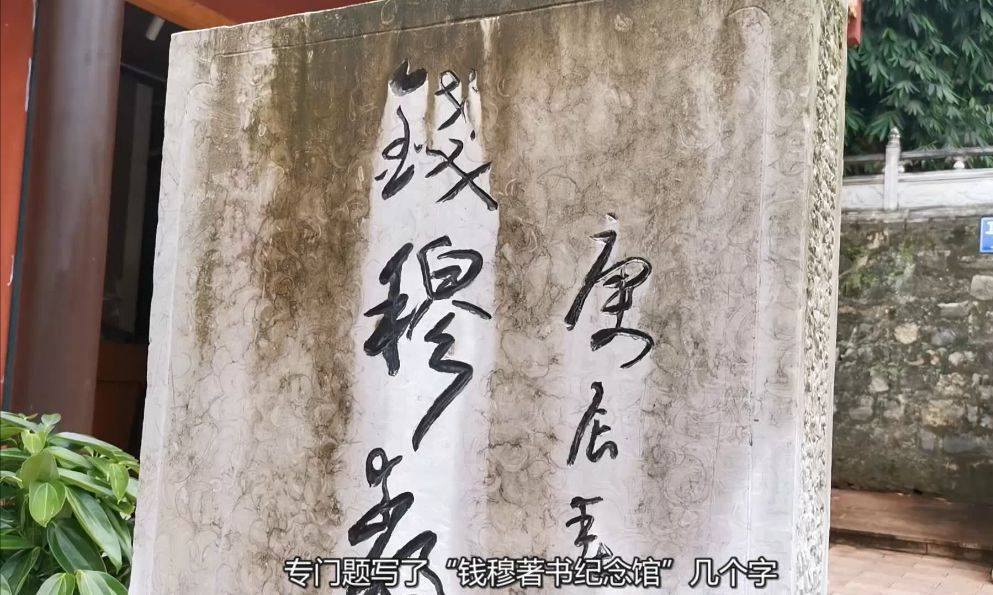 庚辰
錢穆著
专门题写了“钱穆著书纪念馆”几个字